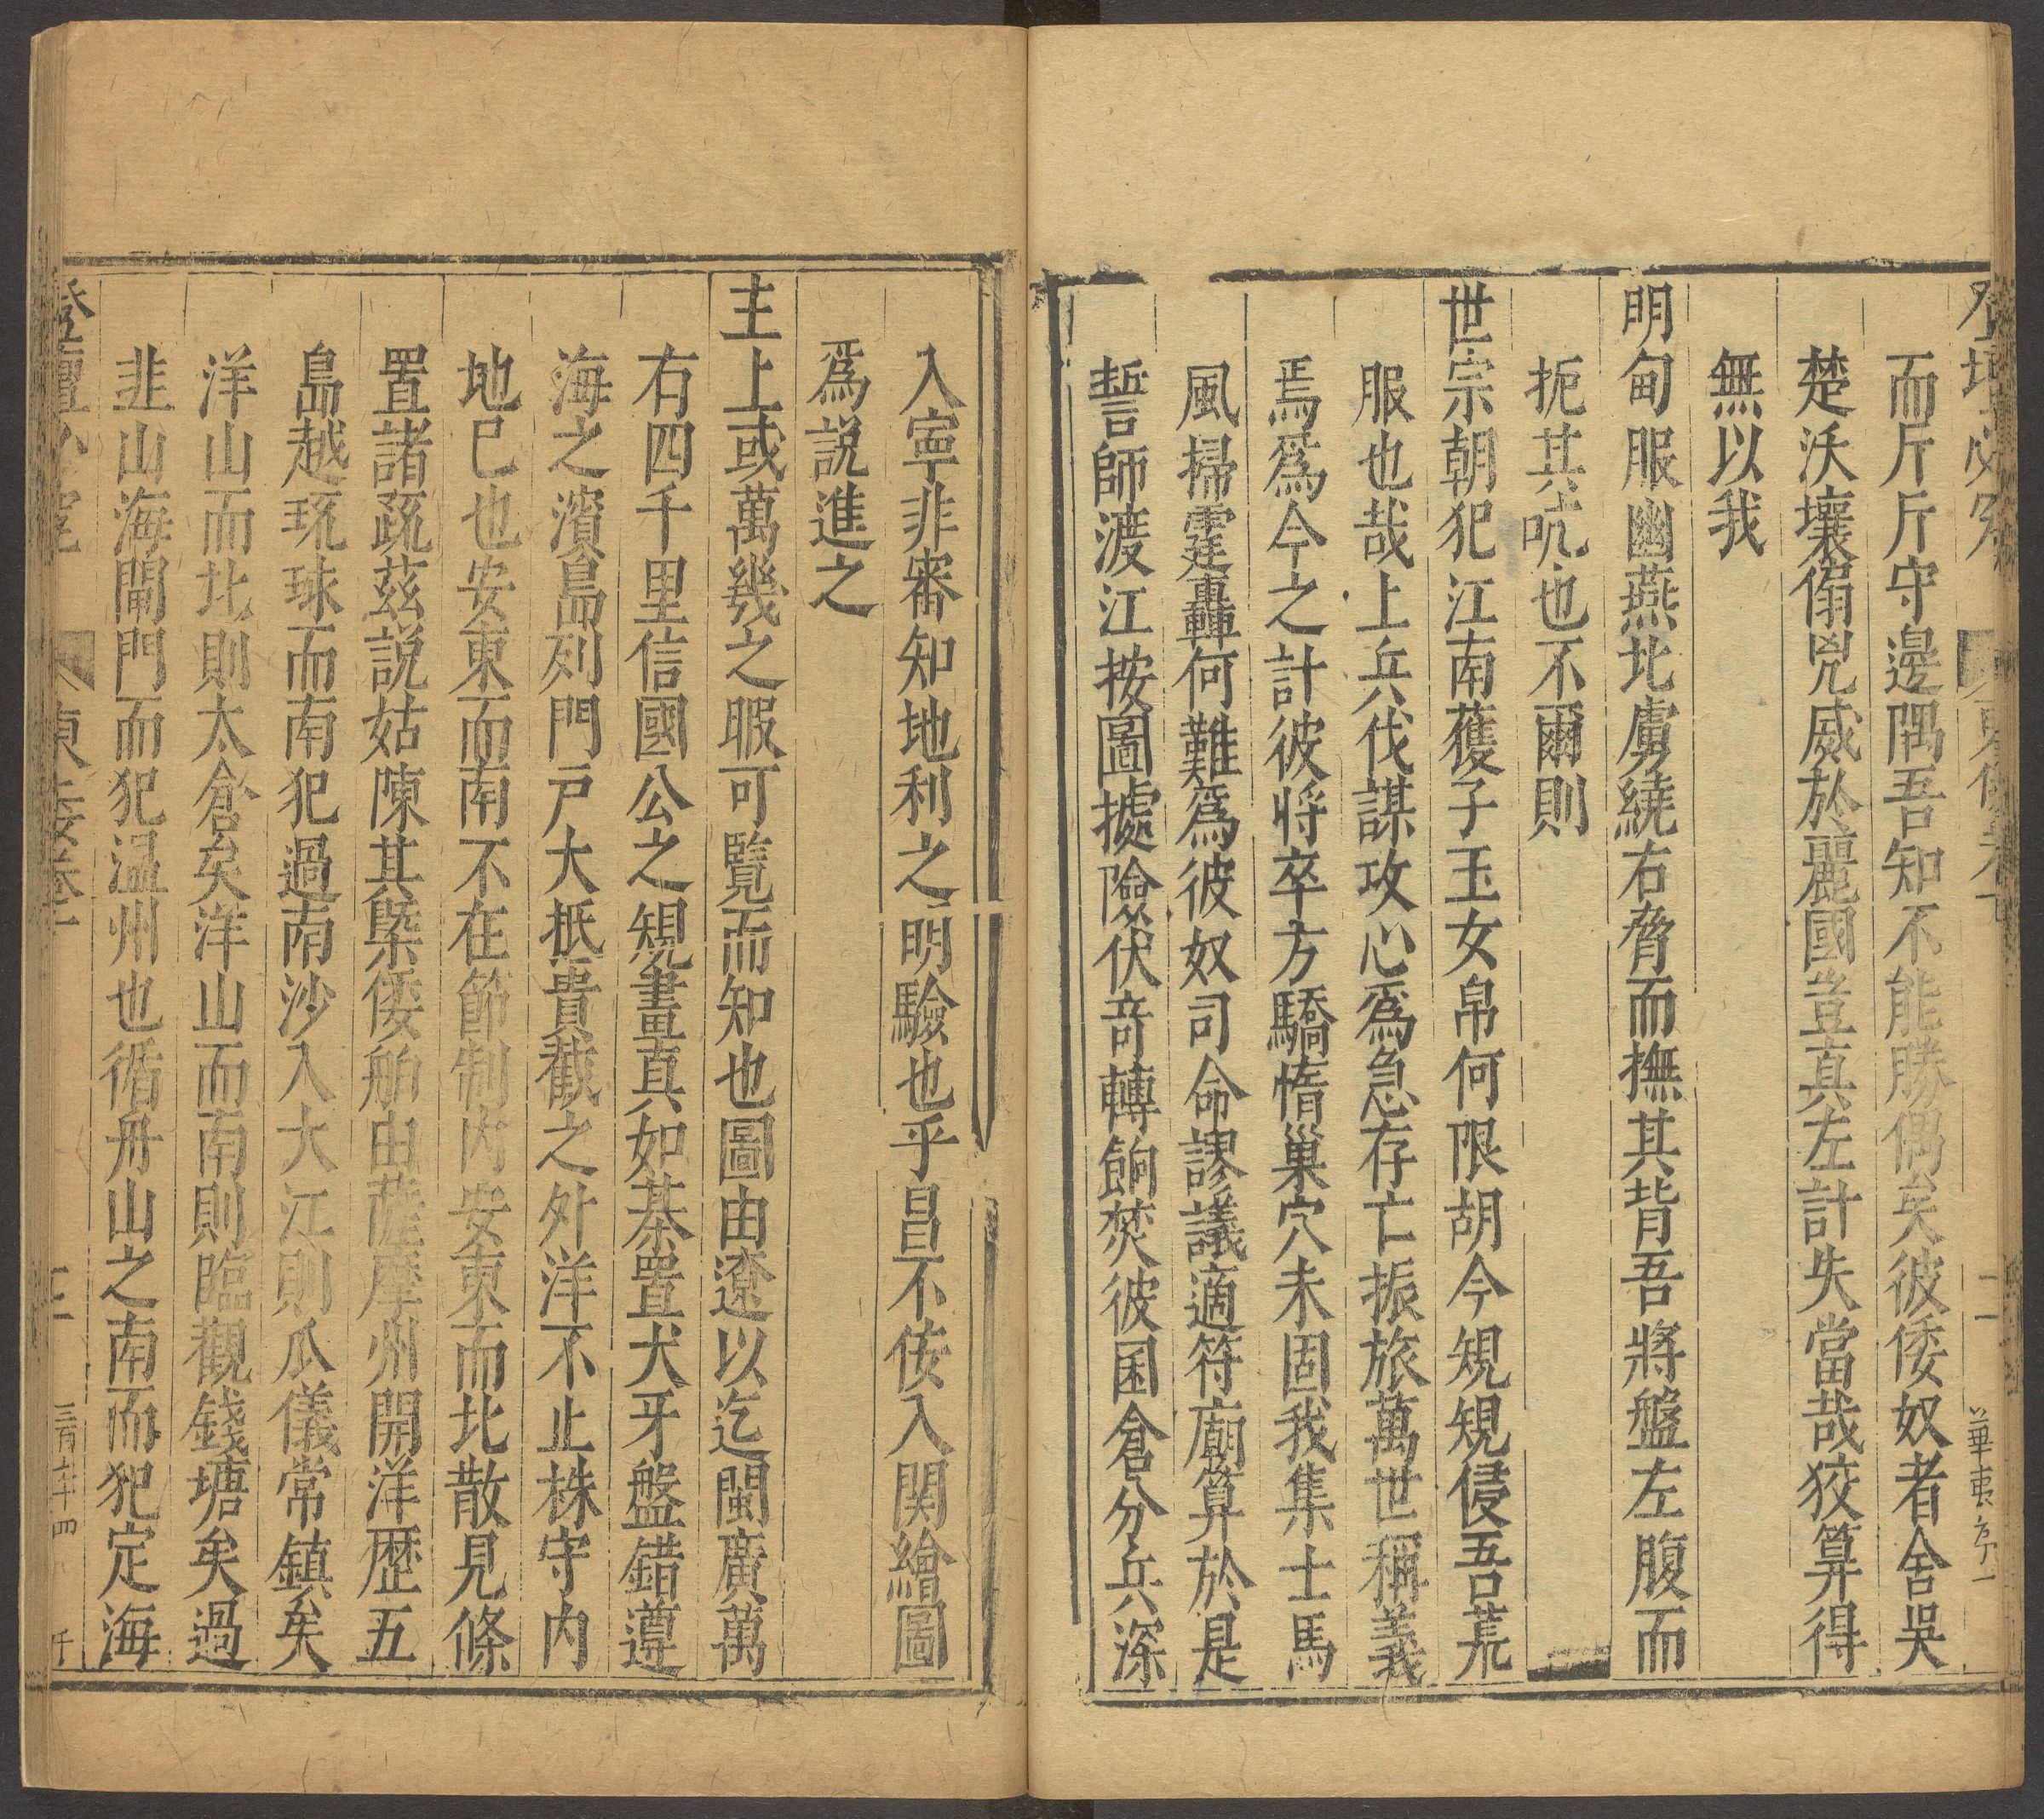 而斤斤守邊隅吾知不能勝偶矣彼倭奴者舍吳
楚沃壤傷兇威於麗國豈真左計失當哉狡算得
無以我
明甸服幽燕北虜繞右脅而撫其背吾將盤左腹而
扼其吭也不爾則
世宗朝犯江南蒦子玉女帛何限胡今規規侵吾荒
服也哉上兵伐謀攻心爲急存亡振旅萬世稱義
焉爲今之計彼將卒方驕惰巢穴未固我集士馬
風掃霆轟何難爲彼奴司命謬議適符廟算於是
誓師渡江按圖據險伏竒轉餉焚彼囷倉分兵深
入寧非審知地利之明驗也乎昌不佞入関繪圖
爲説進之
主上或萬幾之暇可覽而知也圖由遼以迄閩廣萬
右四千里信國公之規畫真如棊置犬牙盤錯遵
海之濱島列門戸大抵貴截之外洋不止株守内
地已也安東而南不在節制内安東而北散見條
置諸疏茲説姑陳其槩倭舶由薩摩州開洋歴五
島越琉球而南犯過南沙入大江則瓜儀常鎮矣
洋山而北則太倉矣洋山而南則臨觀錢塘矣過
韭山海閘門而犯温州也循舟山之南而犯定海
登壇必究
東倭卷